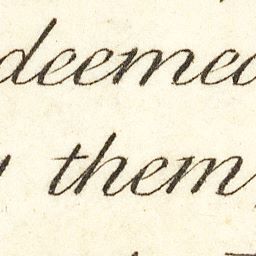 deemed
them,